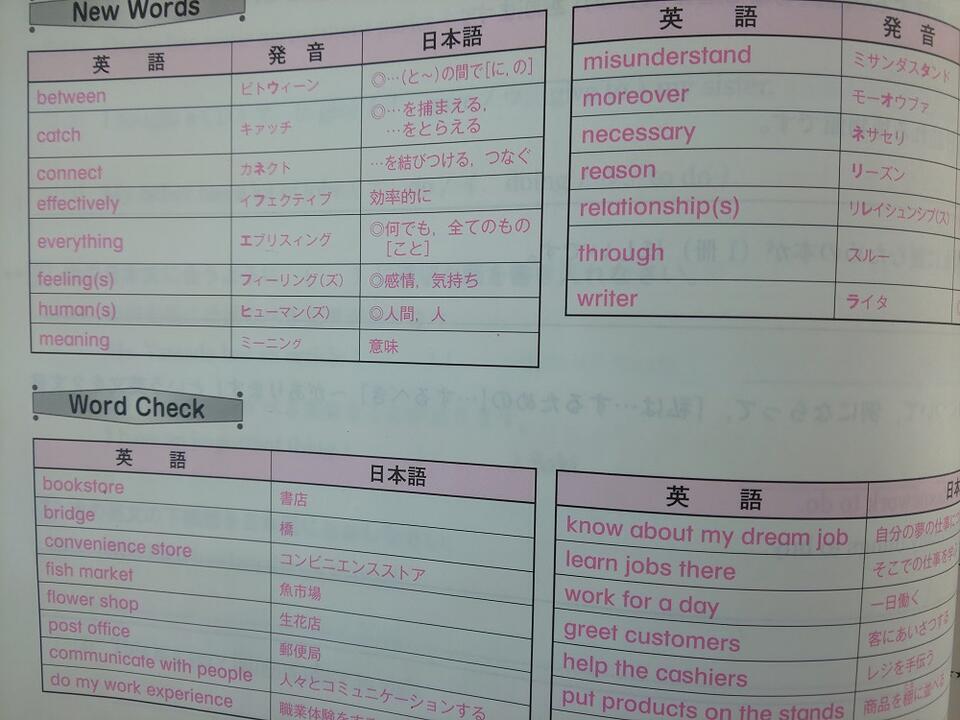 New Words
英 語 発 音 日本語
between ビトウィーン ◎…(と~)の間で[に, の]
catch キァッチ ◎…を捕まえる,
…をとらえる
connect カネクト …を結びつける, つなぐ
effectively イフェクティブ 効率的に
everything エブリスィング ◎何でも, 全てのもの
[こと]
feeling(s) フィーリング(ズ) ◎感情, 気持ち
human(s) ヒューマン(ズ) ◎人間, 人
meaning ミーニング 意味
英 語 発 音
misunderstand ミサンダスタンド
moreover モーオウヴァ
necessary ネサセリ
reason リーズン
relationship(s) リレイシュンシプ(ス)
through スルー
writer ライタ
Word Check
英 語 日本語
bookstore 書店
bridge 橋
convenience store コンビニエンスストア
fish market 魚市場
flower shop 生花店
post office 郵便局
communicate with people 人々とコミュニケーションする
do my work experience 職業体験をする
英 語 日本
know about my dream job 自分の夢の仕事に
learn jobs there そこでの仕事を学
work for a day 一日働く
greet customers 客にあいさつする
help the cashiers レジを手伝う
put products on the stands 商品を棚に並べる